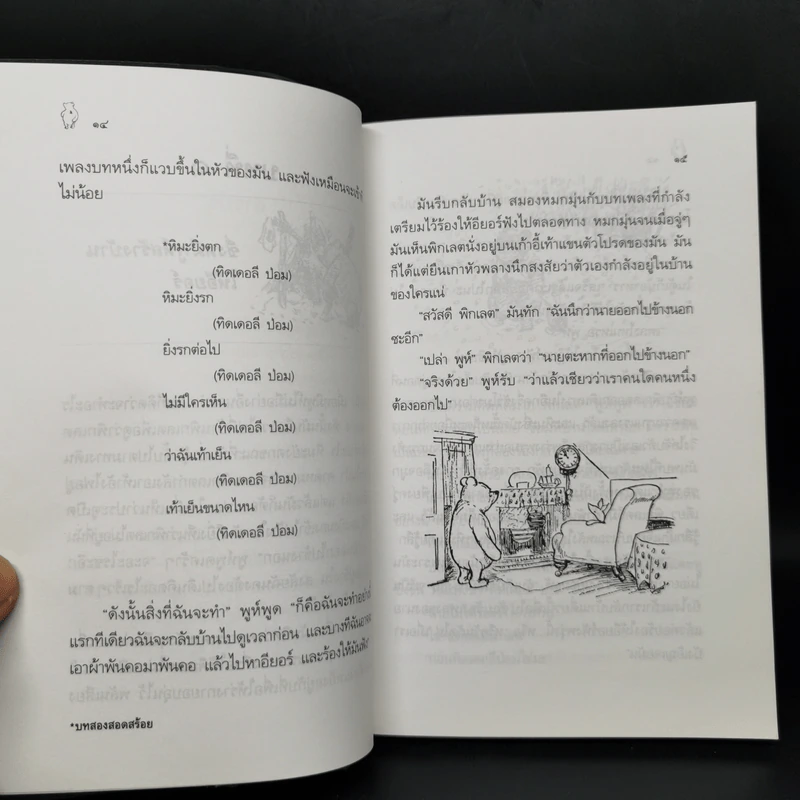 ๑๔
เพลงบทหนึ่งก็แวบขึ้นในหัวของมัน และฟังเหมือนจะเข้า
ไม่น้อย
*หิมะยิ่งตก
(ทิดเดอลี ปอม)
หิมะยิ่งรก
(ทิดเดอลี ปอม)
ยิ่งรกต่อไป
(ทิดเดอลี ปอม)
ไม่มีใครเห็น
(ทิดเดอลี ปอม)
ว่าฉันเท้าเย็น
(ทิดเดอลี ปอม)
เท้าเย็นขนาดไหน
(ทิดเดอลี ปอม)
"ดังนั้นสิ่งที่ฉันจะทำ" พูห์พูด "ก็คือฉันจะทำอย่างนี้
แรกทีเดียวฉันจะกลับบ้านไปดูเวลาก่อน และบางทีฉันอาจ
เอาผ้าพันคอมาพันคอ แล้วไปหาอียอร์ และร้องให้มันฟัง"
*บทสองสอดสร้อย
๑๕
มันรีบกลับบ้าน สมองหมกมุ่นกับบทเพลงที่กำลัง
เตรียมไว้ร้องให้อียอร์ฟังไปตลอดทาง หมกมุ่นจนเมื่อจู่ๆ
มันเห็นพิกเลตนั่งอยู่บนเก้าอี้เท้าแขนตัวโปรดของมัน มัน
ก็ได้แต่ยืนเกาหัวพลางนึกสงสัยว่าตัวเองกำลังอยู่ในบ้าน
ของใครแน่
"สวัสดี พิกเลต" มันทัก "ฉันนึกว่านายออกไปข้างนอก
ซะอีก"
"เปล่า พูห์" พิกเลตว่า "นายตะหากที่ออกไปข้างนอก"
"จริงด้วย" พูห์รับ "ว่าแล้วเชียวว่าเราคนใดคนหนึ่ง
ต้องออกไป"